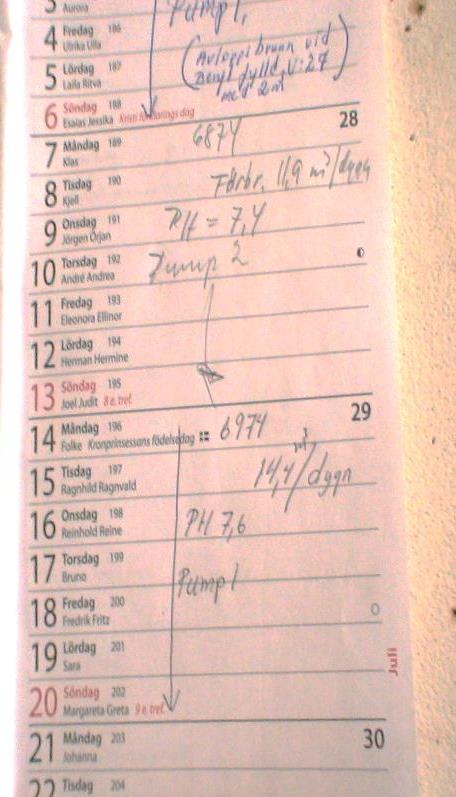 3 Aurora
Pump 1,
4 Fredag 186
Ulrika Ulla
(Avloppsbrunn vid
5 Lördag 187
Laila Ritva
fylld V:27
med 2m³)
6 Söndag 188
Esaias Jessika Kristi förklarings dag
28
7 Måndag 189
Klas
6874
8 Tisdag 190
Kjell
Förbr. 11,9 m³/dygn
9 Onsdag 191
Jörgen Örjan
PH = 7,4
10 Torsdag 192
André Andrea
Pump 2
11 Fredag 193
Eleonora Ellinor
12 Lördag 194
Herman Hermine
13 Söndag 195
Joel Judit 8 e. tref.
29
14 Måndag 196
Folke Kronprinsessans födelsedag
6974
15 Tisdag 197
Ragnhild Ragnvald
14,4 m³/dygn
16 Onsdag 198
Reinhold Reine
PH 7,6
17 Torsdag 199
Bruno
Pump 1
18 Fredag 200
Fredrik Fritz
19 Lördag 201
Sara
Juli
20 Söndag 202
Margareta Greta 9 e. tref.
30
21 Måndag 203
Johanna
22 Tisdag 204